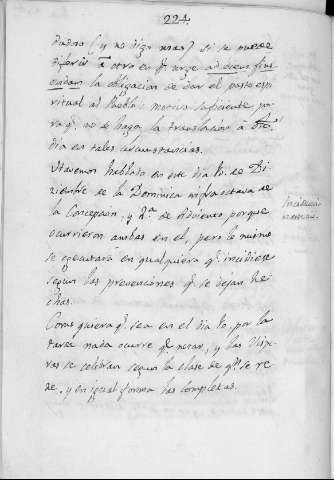 224.
dudosa (y no digo mas) si se puede
diferir à otro en q.e urge ad diem fix
la obligacion de dar el pasto espi
ritual al Pueblo motivo suficiente pa
ra q.e no se haga la translacion à
dia en tales circunstancias.
Havemos hablado en este dia 10. de Di
ziembre de la Dominica infraoctava de
la Concepcion, y 2.a de Adviento porque
ocurrieron ambas en el, pero lo mismo
se executará en qualquiera q.e incidiere
segun las prevenciones q.e se dejan he
chas.
Como quiera q.e sea en el dia 10, por la
tarde nada ocurre q.e notar, y las Vispe
ras se celebran segun la clase de q.n se re
ze, y en igual forma las completas.